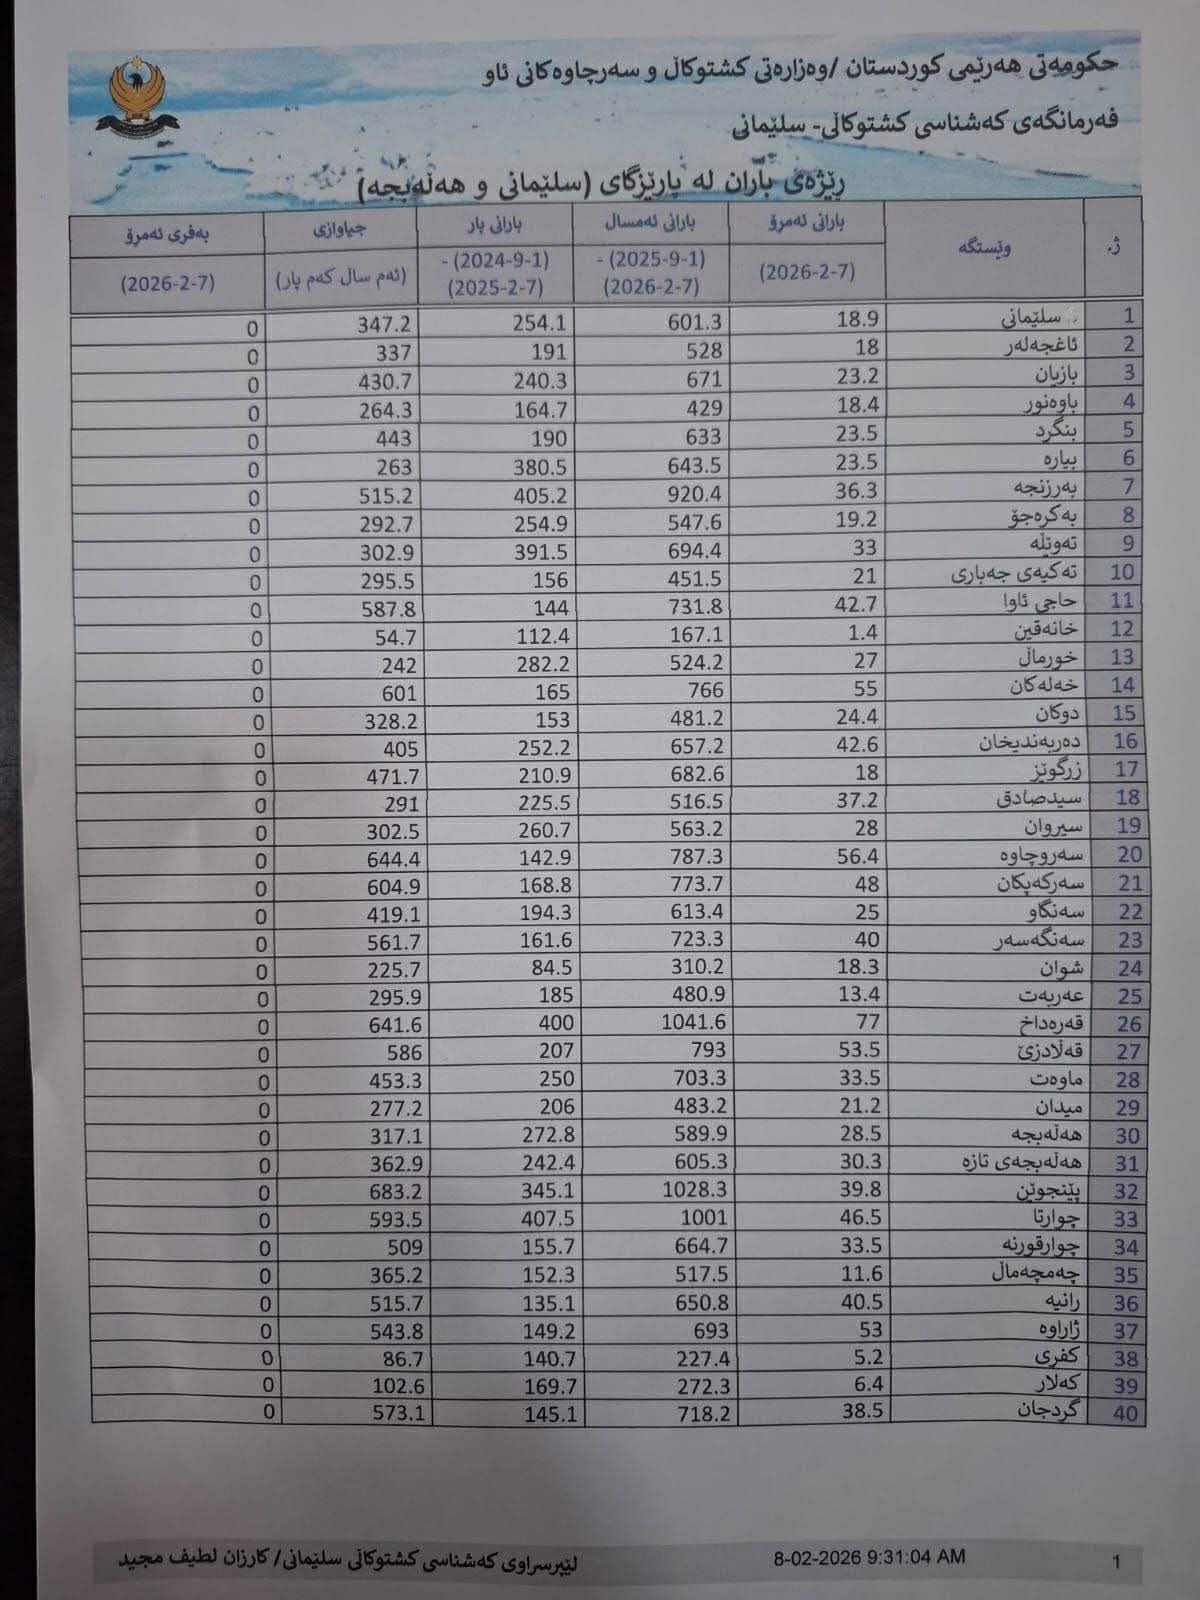 حکومەتی هەرێمی کوردستان /وەزارەتی کشتوکاڵ و سەرچاوەکانی ئاو
فەرمانگەی کەشناسی کشتوکاڵی- سلێمانی
ڕێژەی باران لە پارێزگای (سلێمانی و هەڵەبجە)
ژ. وێستگە بارانی ئەمڕۆ بارانی ئەمساڵ بارانی پار جیاوازی بەفری ئەمڕۆ
(2026-2-7) (2025-9-1) - (2024-9-1) - (ئەم ساڵ کەم پار) (2026-2-7)
(2026-2-7) (2025-2-7)
1 سلێمانی 18.9 601.3 254.1 347.2 0
2 ئاغجەلەر 18 528 191 337 0
3 بازیان 23.2 671 240.3 430.7 0
4 باوەنور 18.4 429 164.7 264.3 0
5 بنگرد 23.5 633 190 443 0
6 بیارە 23.5 643.5 380.5 263 0
7 بەرزنجە 36.3 920.4 405.2 515.2 0
8 بەکرەجۆ 19.2 547.6 254.9 292.7 0
9 تەوێڵە 33 694.4 391.5 302.9 0
10 تەکیەی جەباری 21 451.5 156 295.5 0
11 حاجی ئاوا 42.7 731.8 144 587.8 0
12 خانەقین 1.4 167.1 112.4 54.7 0
13 خورماڵ 27 524.2 282.2 242 0
14 خەلەکان 55 766 165 601 0
15 دوکان 24.4 481.2 153 328.2 0
16 دەربەندیخان 42.6 657.2 252.2 405 0
17 زرگوێز 18 682.6 210.9 471.7 0
18 سیدصادق 37.2 516.5 225.5 291 0
19 سیروان 28 563.2 260.7 302.5 0
20 سەروچاوە 56.4 787.3 142.9 644.4 0
21 سەرکەپکان 48 773.7 168.8 604.9 0
22 سەنگاو 25 613.4 194.3 419.1 0
23 سەنگەسەر 40 723.3 161.6 561.7 0
24 شوان 18.3 310.2 84.5 225.7 0
25 عەربەت 13.4 480.9 185 295.9 0
26 قەرەداخ 77 1041.6 400 641.6 0
27 قەڵادزێ 53.5 793 207 586 0
28 ماوەت 33.5 703.3 250 453.3 0
29 میدان 21.2 483.2 206 277.2 0
30 هەڵەبجە 28.5 589.9 272.8 317.1 0
31 هەڵەبجەی تازە 30.3 605.3 242.4 362.9 0
32 پێنجوێن 39.8 1028.3 345.1 683.2 0
33 چوارتا 46.5 1001 407.5 593.5 0
34 چوارقورنە 33.5 664.7 155.7 509 0
35 چەمچەماڵ 11.6 517.5 152.3 365.2 0
36 رانیە 40.5 650.8 135.1 515.7 0
37 ژاراوە 53 693 149.2 543.8 0
38 کفری 5.2 227.4 140.7 86.7 0
39 کەلار 6.4 272.3 169.7 102.6 0
40 گردجان 38.5 718.2 145.1 573.1 0
لێپرسراوی کەشناسی کشتوکاڵی سلێمانی/ کارزان لطیف مجید 8-02-2026 9:31:04 AM 1